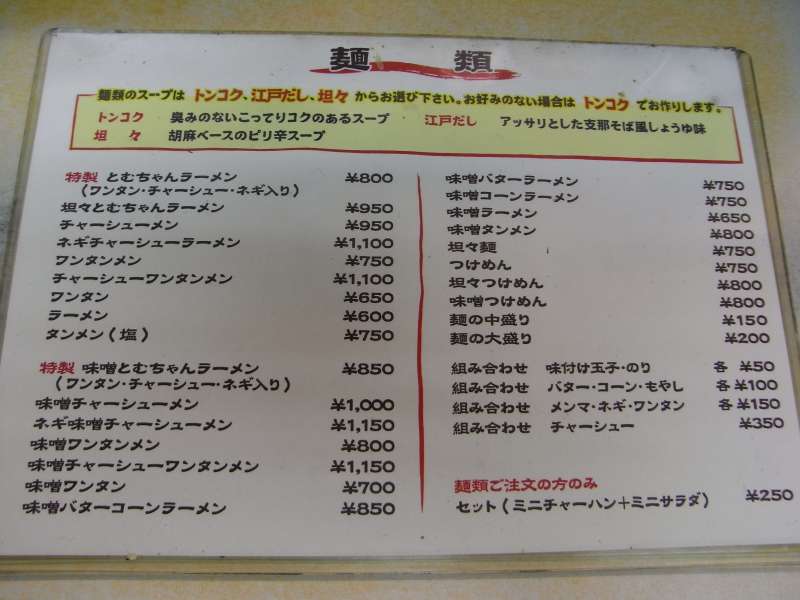 麺類
麺類のスープは トンコク、江戸だし、坦々 からお選び下さい。お好みのない場合は トンコク でお作りします。
トンコク 臭みのないこってりコクのあるスープ 江戸だし アッサリとした支那そば風しょうゆ味
坦々 胡麻ベースのピリ辛スープ
特製 とむちゃんラーメン ¥800
(ワンタン・チャーシュー・ネギ入り)
坦々とむちゃんラーメン ¥950
チャーシューメン ¥950
ネギチャーシューラーメン ¥1,100
ワンタンメン ¥750
チャーシューワンタンメン ¥1,100
ワンタン ¥650
ラーメン ¥600
タンメン(塩) ¥750
特製 味噌とむちゃんラーメン ¥850
(ワンタン・チャーシュー・ネギ入り)
味噌チャーシューメン ¥1,000
ネギ味噌チャーシューメン ¥1,150
味噌ワンタンメン ¥800
味噌チャーシューワンタンメン ¥1,150
味噌ワンタン ¥700
味噌バターコーンラーメン ¥850
味噌バターラーメン ¥750
味噌コーンラーメン ¥750
味噌ラーメン ¥650
味噌タンメン ¥800
坦々麺 ¥750
つけめん ¥750
坦々つけめん ¥800
味噌つけめん ¥800
麺の中盛り ¥150
麺の大盛り ¥200
組み合わせ 味付け玉子・のり 各 ¥50
組み合わせ バター・コーン・もやし 各 ¥100
組み合わせ メンマ・ネギ・ワンタン 各 ¥150
組み合わせ チャーシュー ¥350
麺類ご注文の方のみ
セット(ミニチャーハン+ミニサラダ) ¥250